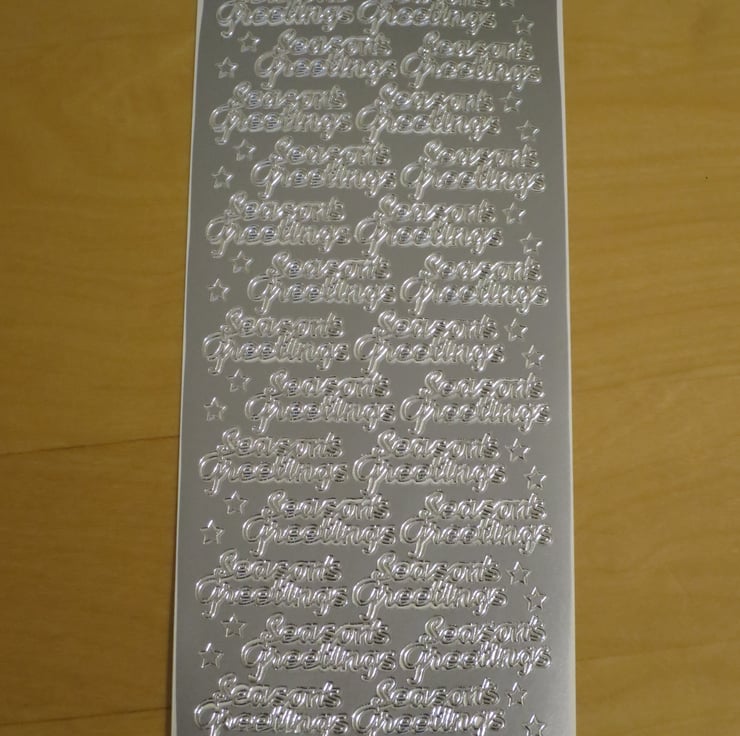 Season's Season's
Greetings Greetings
Season's Season's
Greetings Greetings
Season's Season's
Greetings Greetings
Season's Season's
Greetings Greetings
Season's Season's
Greetings Greetings
Season's Season's
Greetings Greetings
Season's Season's
Greetings Greetings
Season's Season's
Greetings Greetings
Season's Season's
Greetings Greetings
Season's Season's
Greetings Greetings
Season's Season's
Greetings Greetings
Season's Season's
Greetings Greetings
Season's Season's
Greetings Greetings